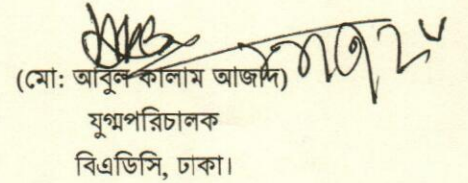 (মো: আবুল কালাম আজাদ)
যুগ্মপরিচালক
বিএডিসি, ঢাকা।